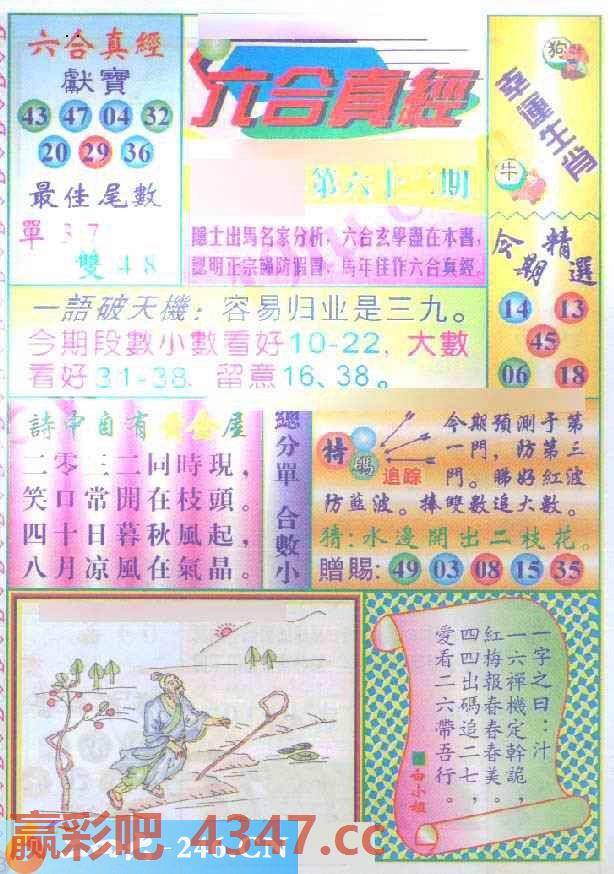 六合真經
獻寶
43 47 04 32
20 29 36
最佳尾數
單 37
雙 48
六合真經
第六十二期
隱士出馬名家分析，六合玄學盡在本書，
認明正宗謹防假冒，馬年佳作六合真經。
狗
幸運生肖
牛
今期
精選
14 13
45
06 18
一語破天機：容易归业是三九。
今期段數小數看好10-22，大數
看好31-38，留意16、38。
詩中自有黃金屋
二零三二同時現，
笑口常開在枝頭。
四十日暮秋風起，
八月凉風在氣晶。
總分單 合數小
特碼
追踪
今期預測于第
一門，防第三
門。睇好紅波
防藍波。捧雙數追大數。
猜：水邊開出二枝花。
贈賜：49 03 08 15 35
一字之曰：汁
一六禪機定幹詭，
紅梅報春春春美。
四四出碼追二七，
愛看二六帶吾行。
白小姐
赢彩吧 4347.cc
-246.CN